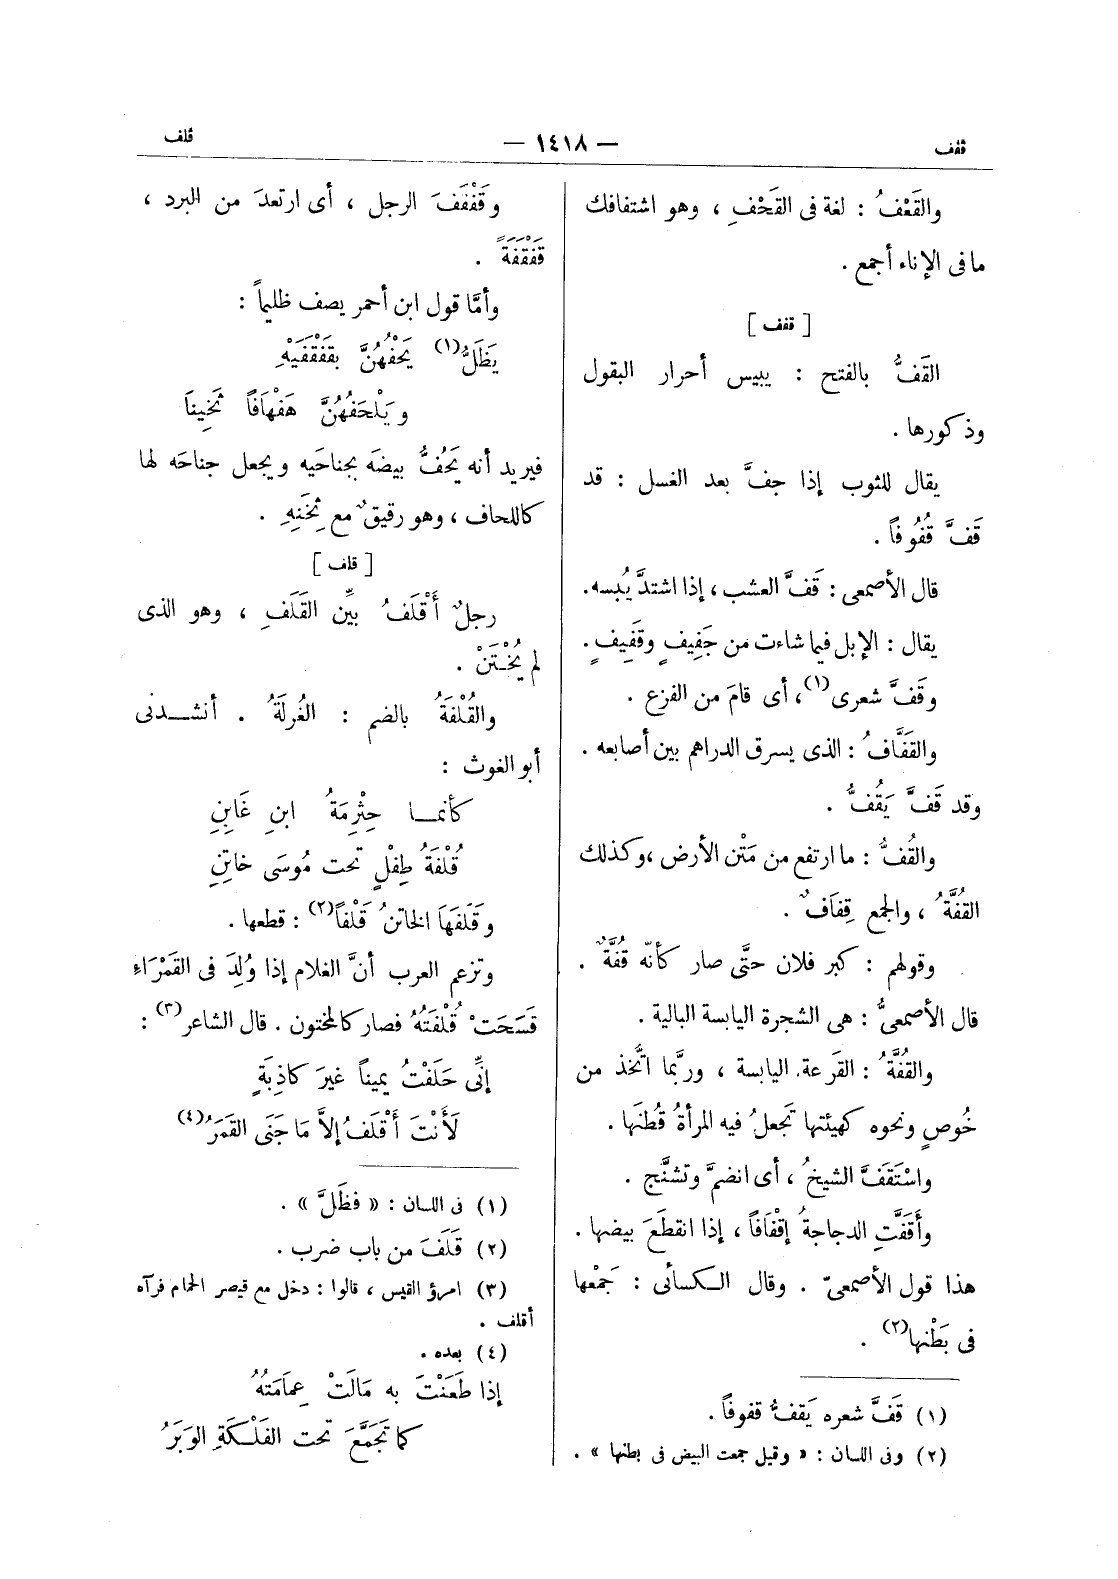 قفف
— ١٤١٨ —
قلف
والقَعْفُ : لغة فى القَحْفِ ، وهو اشتفافك
ما فى الإناء أجمع .
[ قفف ]
القَفُّ بالفتح : يبيس أحرار البقول
وذكورها .
يقال للثوب إذا جفَّ بعد الغسل : قد
قَفَّ قُفُوفاً .
قال الأصمعى : قَفَّ العشب ، إذا اشتدَّ يُبسه .
يقال : الإبل فيما شاءت من جَفِيفٍ وقَفِيفٍ .
وقَفَّ شعرى(١)، أى قامَ من الفزع .
والقَفَّافُ : الذى يسرق الدراهم بين أصابعه .
وقد قَفَّ يَقُفُّ .
والقُفُّ : ما ارتفع من مَتْن الأرض ، وكذلك
القُفَّةُ ، والجمع قِفَافٌ .
وقولهم : كبر فلان حتَّى صار كأنّه قُفَّةٌ .
قال الأصمعىُّ : هى الشجرة اليابسة البالية .
والقُفَّةُ : القَرعة اليابسة ، وربَّما اتُّخذ من
خُوصٍ ونحوه كهيئتها تَجعلُ فيه المرأةُ قُطنَها .
واسْتَقَفَّ الشيخُ ، أى انضمَّ وتشنَّج .
وأَقَفَّتِ الدجاجةُ إقْفَافاً ، إذا انقطَعَ بيضها .
هذا قول الأصمعىّ . وقال الكسائى : جَمْعها
فى بَطْنها(٢) .
(١) قَفَّ شعره يَقفُّ قفوفاً .
(٢) وفى اللسان : « وقيل جمعت البيض فى بطنها » .
وقَفْقَفَ الرجل ، أى ارتعدَ من البرد ،
قَفْقَفَةً .
وأمَّا قول ابن أحمر يصف ظليماً :
يَظَلُّ(١) يَحُفُّهُنَّ بقَفْقَفَيْهِ
ويَلْحَفُهُنَّ هَفْهَافاً ثَخِيناً
فيريد أنه يَحُفُّ بيضَه بجناحَيه ويجعل جناحَه لها
كاللحاف ، وهو رقيقٌ مع ثِخَنِهِ .
[ قلف ]
رجلٌ أَقْلَفُ بيِّن القَلَفِ ، وهو الذى
لم يُخْتَنْ .
والقُلْفَةُ بالضم : الغُرلَةُ . أنشدنى
أبو الغوث :
كأنما حِثْرِمَةُ ابنِ غَابِنِ
قُلْفَةُ طِفْلٍ تحت مُوسَى خاتِنِ
وقَلَفَهَا الخاتنُ قَلْفاً(٢) : قطعها .
وتزعم العرب أنَّ الغلام إذا وُلِدَ فى القَمْرَاءِ
قَسَحَتْ قُلْفَتُهُ فصار كالمختون . قال الشاعر(٣) :
إنِّى حَلَفْتُ يميناً غيرَ كاذِبَةٍ
لَأَنْتَ أَقْلَفُ إلاَّ مَا جَنَى القَمَرُ(٤)
(١) فى اللسان : « فظَلَّ » .
(٢) قَلَفَ من باب ضرب .
(٣) امرؤ القيس ، قالوا : دخل مع قيصر الحمام فرآه
أقلف .
(٤) بعده .
إذا طَعَنْتَ به مَالَتْ عِمَامَتُهُ
كما تَجَمَّعَ تحت الفَلْكَةِ الوَبَرُ